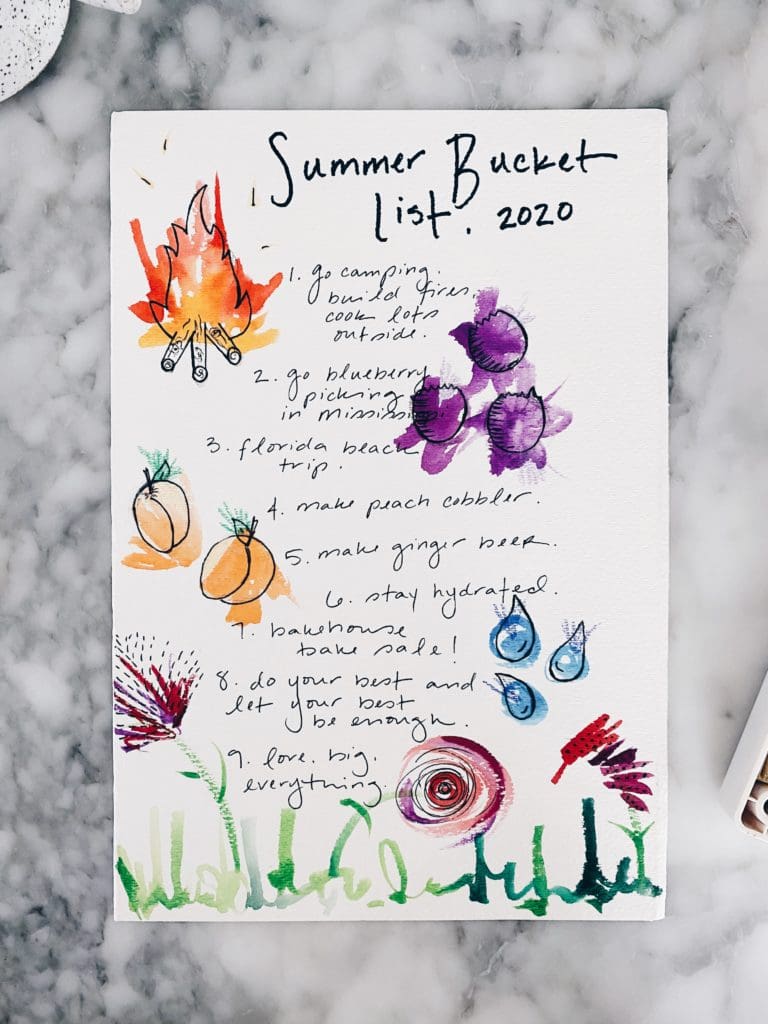 Summer Bucket
list. 2020
1. go camping.
build fires.
cook lots
outside.
2. go blueberry
picking
in mississippi.
3. florida beach
trip.
4. make peach cobbler.
5. make ginger beer.
6. stay hydrated.
7. bakehouse
bake sale!
8. do your best and
let your best
be enough.
9. love. big.
everything.